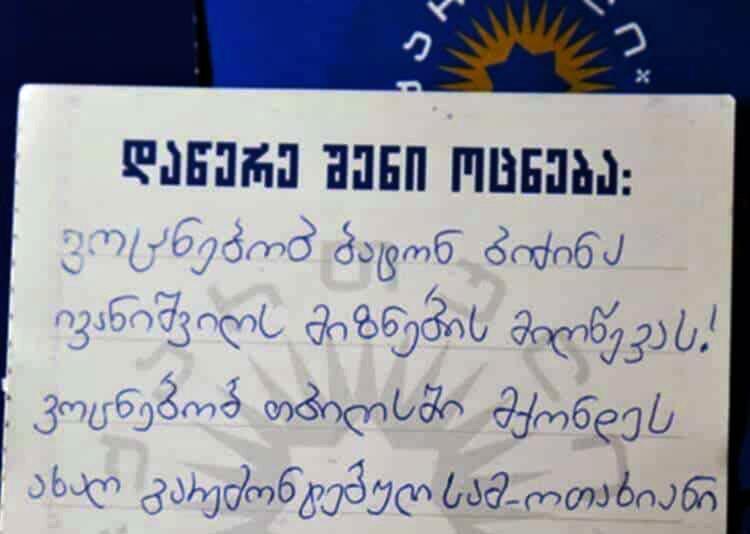 დაწერე შენი ოცნება:
ვოცნებობ ბატონ ბიძინა
ივანიშვილს მიზნების მიღწევას!
ვოცნებობ თბილისში მქონდეს
ახალ გარემონტებულ სამ-ოთახიანი